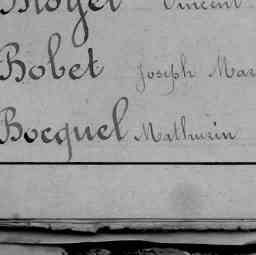 Vincent
Bobet Joseph Mar
Bocquel Mathurin